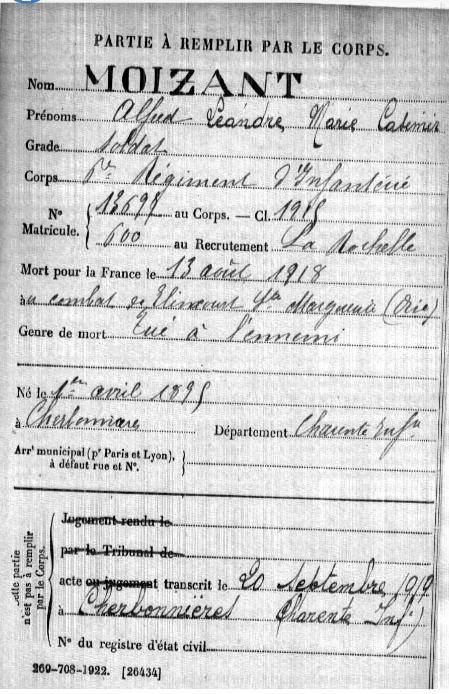 PARTIE À REMPLIR PAR LE CORPS.
Nom MOIZANT
Prénoms Alfred Léandre Marie Casimir
Grade Soldat
Corps 6e Régiment d'Infanterie
N° Matricule. { 13697 au Corps. — Cl. 1915
600 au Recrutement La Rochelle
Mort pour la France le 13 août 1918
au combat de Elincourt Ste Marguerite (Oise)
Genre de mort Tué à l'ennemi
Né le 1er avril 1895
à Cherbonnières Département Charente Infre
Arrt municipal (pr Paris et Lyon),
à défaut rue et N°.
Cette partie n'est pas à remplir par le Corps.
Jugement rendu le
par le Tribunal de
acte ou jugement transcrit le 20 septembre 1919
à Cherbonnières Charente Infre)
N° du registre d'état civil
269-708-1922. [26434]